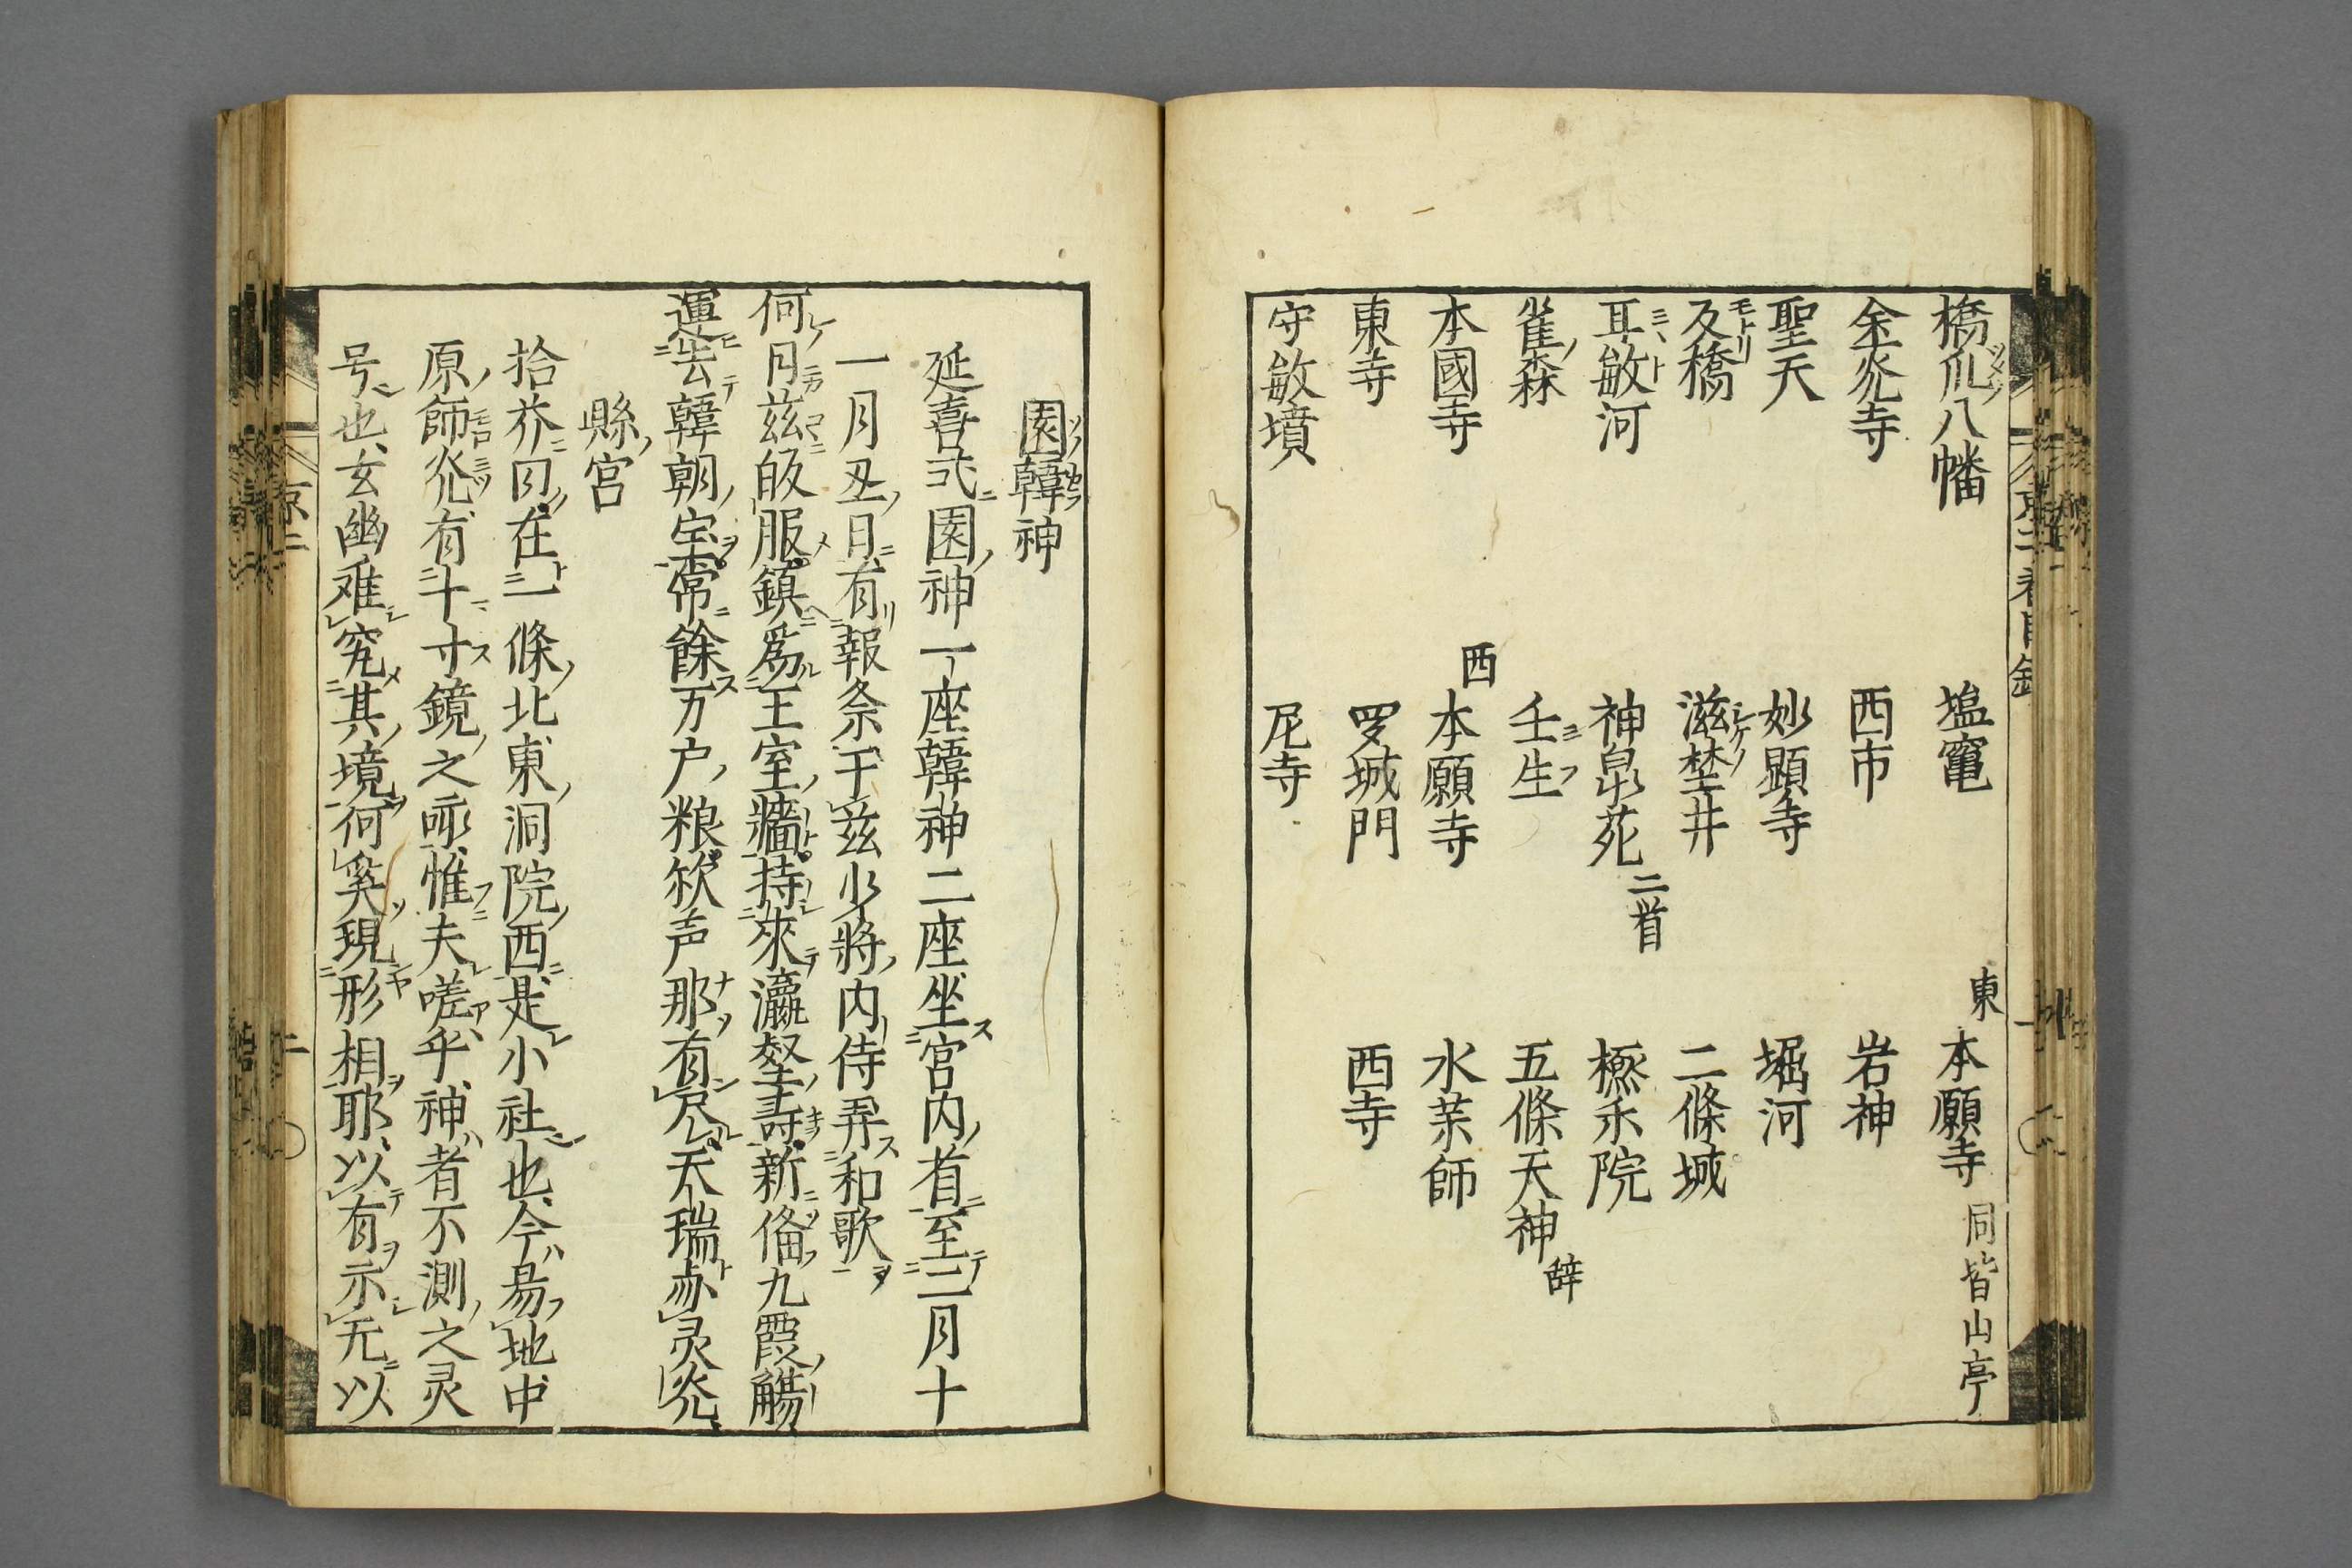 橋爪八幡 塩竃 東本願寺 同皆山亭
金光寺 西市 岩神
聖天 妙顕寺 堀河
反橋 滋埜井 二條城
耳敏河 神泉苑 二首 櫾禾院
雀森 壬生 五條天神 辞
本國寺 西本願寺 水茶師
東寺 罗城門 西寺
守敏墳 尼寺
園韓神
延喜式園神一座韓神二座坐宮内省至二月十
一月丑日有報祭于茲少將内侍弄和歌
何月茲皈服鎮爲王室牆持來瀛壑壽新俻九霞觴
運去韓朝宝常餘万户粮欤声那有尺天瑞亦灵光
縣宮
拾芥曰在一條北東洞院西是小社也今昜地中
原師光有十寸鏡之哥惟夫嗟乎神者不測之灵
号也玄幽难究其境何奚現形相耶以有示无以